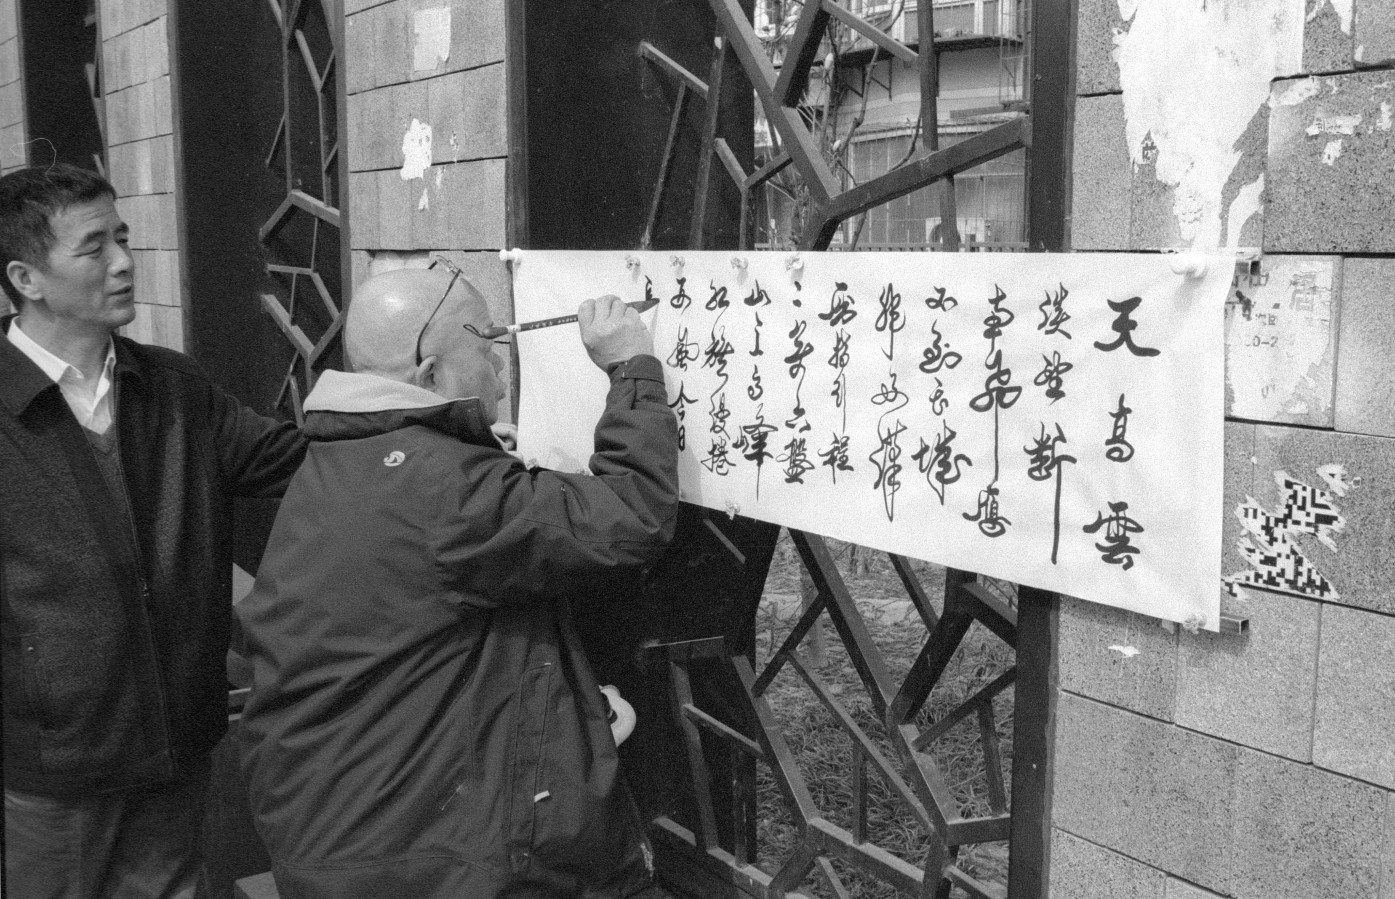 天高雲
淡望断
南飛雁
不到長城
非好漢
屈指行程
二萬六盤
山上高峰
红旗漫捲
西風今日